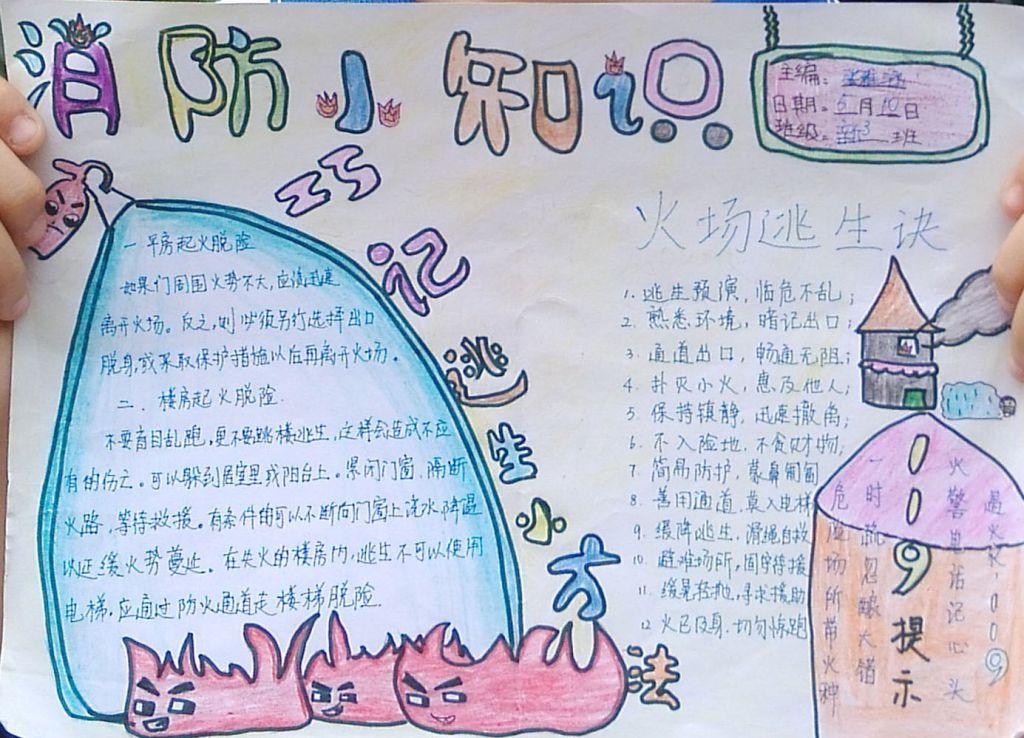 消防小知识
主编：
日期：5月10日
班级：新3班
巧记逃生小方法
一 平房起火脱险
如果们周围火势不大，应该迅速
离开火场。反之，则必须另行选择出口
脱身，或采取保护措施以后再离开火场。
二. 楼房起火脱险.
不要盲目乱跑，更不要跳楼逃生，这样会造成不应
有的伤亡。可以躲到居室里或阳台上。紧闭门窗，隔断
火路，等待救援。有条件的可以不断向门窗上浇水降温
以延缓火势蔓延。在失火的楼房内，逃生不可以使用
电梯，应通过防火通道走楼梯脱险.
火场逃生诀
1. 逃生预演，临危不乱；
2. 熟悉环境，暗记出口；
3. 通道出口，畅通无阻；
4. 扑灭小火，惠及他人；
5. 保持镇静，迅速撤离；
6. 不入险地，不贪财物；
7. 简易防护，蒙鼻匍匐
8. 善用通道，莫入电梯
9. 缓降逃生，滑绳自救
10. 避难场所，固守待援
11. 缓晃轻抛，寻求援助
12 火已及身，切勿惊跑
119提示
遇火灾，119
火警电话记心头
一时疏忽酿大错
危险场所带火种